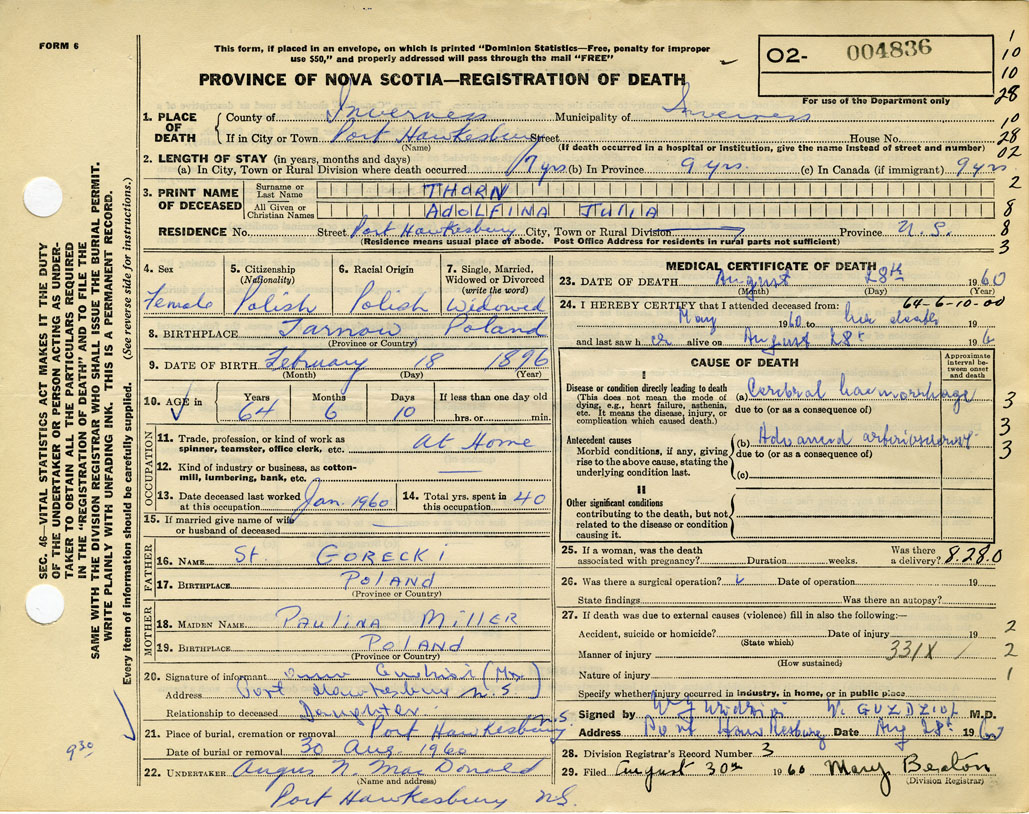 FORM 6
This form, if placed in an envelope, on which is printed "Dominion Statistics—Free, penalty for improper
use $50," and properly addressed will pass through the mail "FREE"
PROVINCE OF NOVA SCOTIA—REGISTRATION OF DEATH
O2- 004836
For use of the Department only
1
10
10
28
10
28
02
2
8
8
3
SEC. 46—VITAL STATISTICS ACT MAKES IT THE DUTY
OF THE UNDERTAKER OR PERSON ACTING AS UNDER-
TAKER TO OBTAIN ALL THE PARTICULARS REQUIRED
IN THE "REGISTRATION OF DEATH" AND TO FILE THE
SAME WITH THE DIVISION REGISTRAR WHO SHALL ISSUE THE BURIAL PERMIT.
WRITE PLAINLY WITH UNFADING INK. THIS IS A PERMANENT RECORD.
Every item of information should be carefully supplied. (See reverse side for instructions.)
1. PLACE OF DEATH
County of Inverness Municipality of Inverness
If in City or Town Port Hawkesbury Street House No.
(Name) (If death occurred in a hospital or institution, give the name instead of street and number)
2. LENGTH OF STAY (in years, months and days)
(a) In City, Town or Rural Division where death occurred 7 yrs (b) In Province 9 yrs. (c) In Canada (if immigrant) 9 yrs
3. PRINT NAME OF DECEASED
Surname or Last Name THORN
All Given or Christian Names ADOLFINA JULIA
RESIDENCE No. Street Port Hawkesbury City, Town or Rural Division Province N.S.
(Residence means usual place of abode. Post Office Address for residents in rural parts not sufficient)
4. Sex
Female
5. Citizenship
(Nationality)
Polish
6. Racial Origin
Polish
7. Single, Married,
Widowed or Divorced
(write the word)
Widowed
8. BIRTHPLACE Tarnow Poland
(Province or Country)
9. DATE OF BIRTH February 18 1896
(Month) (Day) (Year)
10. AGE in Years Months Days If less than one day old
64 6 10 hrs. or min.
OCCUPATION
11. Trade, profession, or kind of work as
spinner, teamster, office clerk, etc. At Home
12. Kind of industry or business, as cotton-
mill, lumbering, bank, etc. —
13. Date deceased last worked
at this occupation Jan. 1960
14. Total yrs. spent in
this occupation 40
15. If married give name of wife
or husband of deceased —
FATHER
16. NAME St GORECKI
17. BIRTHPLACE POLAND
(Province or Country)
MOTHER
18. MAIDEN NAME PAULINA MILLER
19. BIRTHPLACE POLAND
(Province or Country)
20. Signature of informant (Mrs)
Address Port Hawkesbury N.S
Relationship to deceased Daughter
21. Place of burial, cremation or removal Port Hawkesbury N.S.
Date of burial or removal 30 Aug 1960
22. UNDERTAKER Angus N. MacDonald
(Name and address)
Port Hawkesbury N.S.
9 30
MEDICAL CERTIFICATE OF DEATH
23. DATE OF DEATH August 28th 1960
(Month) (Day) (Year)
64-6-10-00
24. I HEREBY CERTIFY that I attended deceased from:
May 1960 to her death 19
and last saw her alive on August 28th 196
CAUSE OF DEATH
Approximate
interval be-
tween onset
and death
I
Disease or condition directly leading to death
(This does not mean the mode of
dying, e.g., heart failure, asthenia,
etc. It means the disease, injury, or
complication which caused death.)
(a) Cerebral haemorrhage
due to (or as a consequence of)
Antecedent causes
Morbid conditions, if any, giving
rise to the above cause, stating the
underlying condition last.
(b) Advanced arteriosclerosis
due to (or as a consequence of)
(c)
II
Other significant conditions
contributing to the death, but not
related to the disease or condition
causing it.
3
3
3
3
25. If a woman, was the death
associated with pregnancy? Duration weeks. Was there
a delivery? 8280
26. Was there a surgical operation? Date of operation 19
State findings Was there an autopsy?
27. If death was due to external causes (violence) fill in also the following:—
Accident, suicide or homicide? Date of injury 19
(State which)
Manner of injury 331X 1
(How sustained)
Nature of injury
Specify whether injury occurred in industry, in home, or in public place
2
2
1
Signed by W. GUZDZIOL M.D.
Address Port Hawkesbury Date Aug 28th 1960
28. Division Registrar's Record Number 3
29. Filed August 30th 1960 Mary Beaton
(Division Registrar)